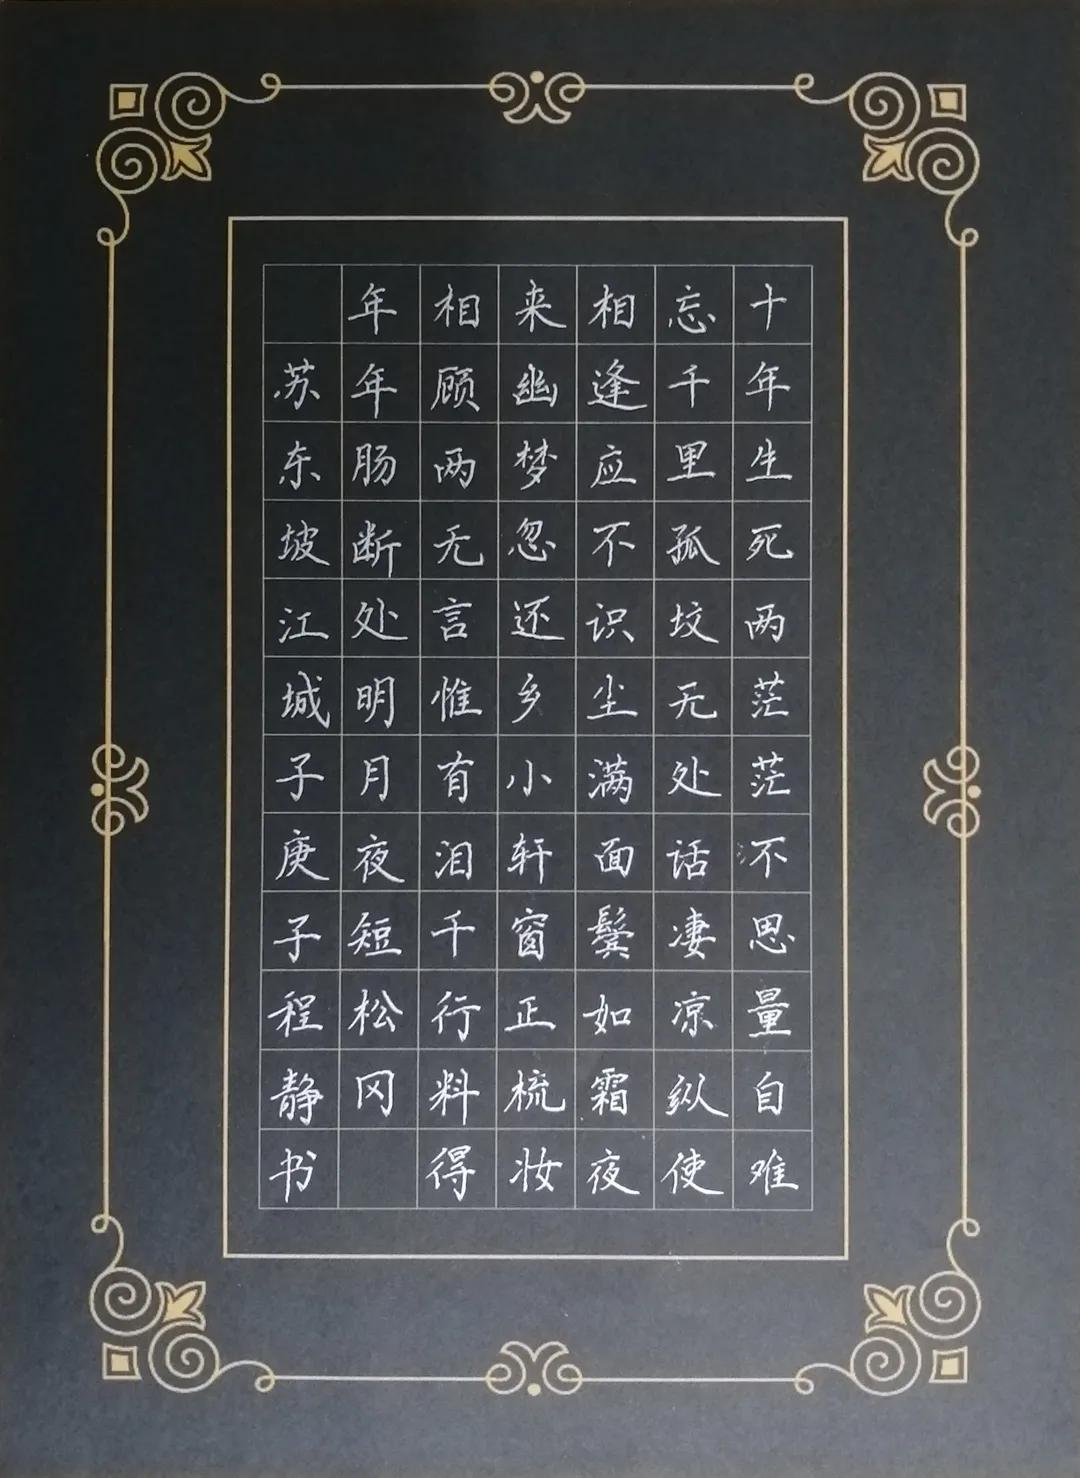 十年生死两茫茫不思量自难
忘千里孤坟无处话凄凉纵使
相逢应不识尘满面鬓如霜夜
来幽梦忽还乡小轩窗正梳妆
相顾两无言惟有泪千行料得
年年肠断处明月夜短松冈
苏东坡江城子庚子程静书